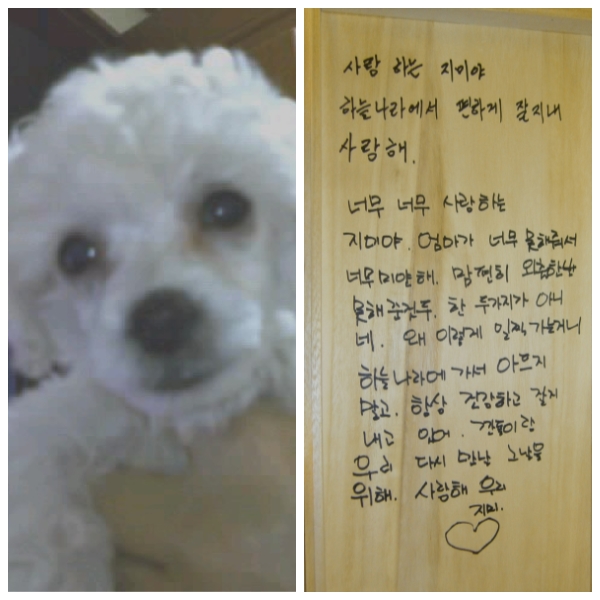 사랑 하는 지미야
하늘나라에서 편하게 잘지내
사랑해.
너무 너무 사랑하는
지미야. 엄마가 너무 못해줘서
너무미안해. 맘편히 외출한번
못해준것두. 한 두가지가 아니
네. 왜 이렇게 일찍가는거니
하늘나라에가서 아프지
말고. 항상 건강하고 잘지
내고 있어.
우리 다시 만날
위해. 사랑해 우리
지미.